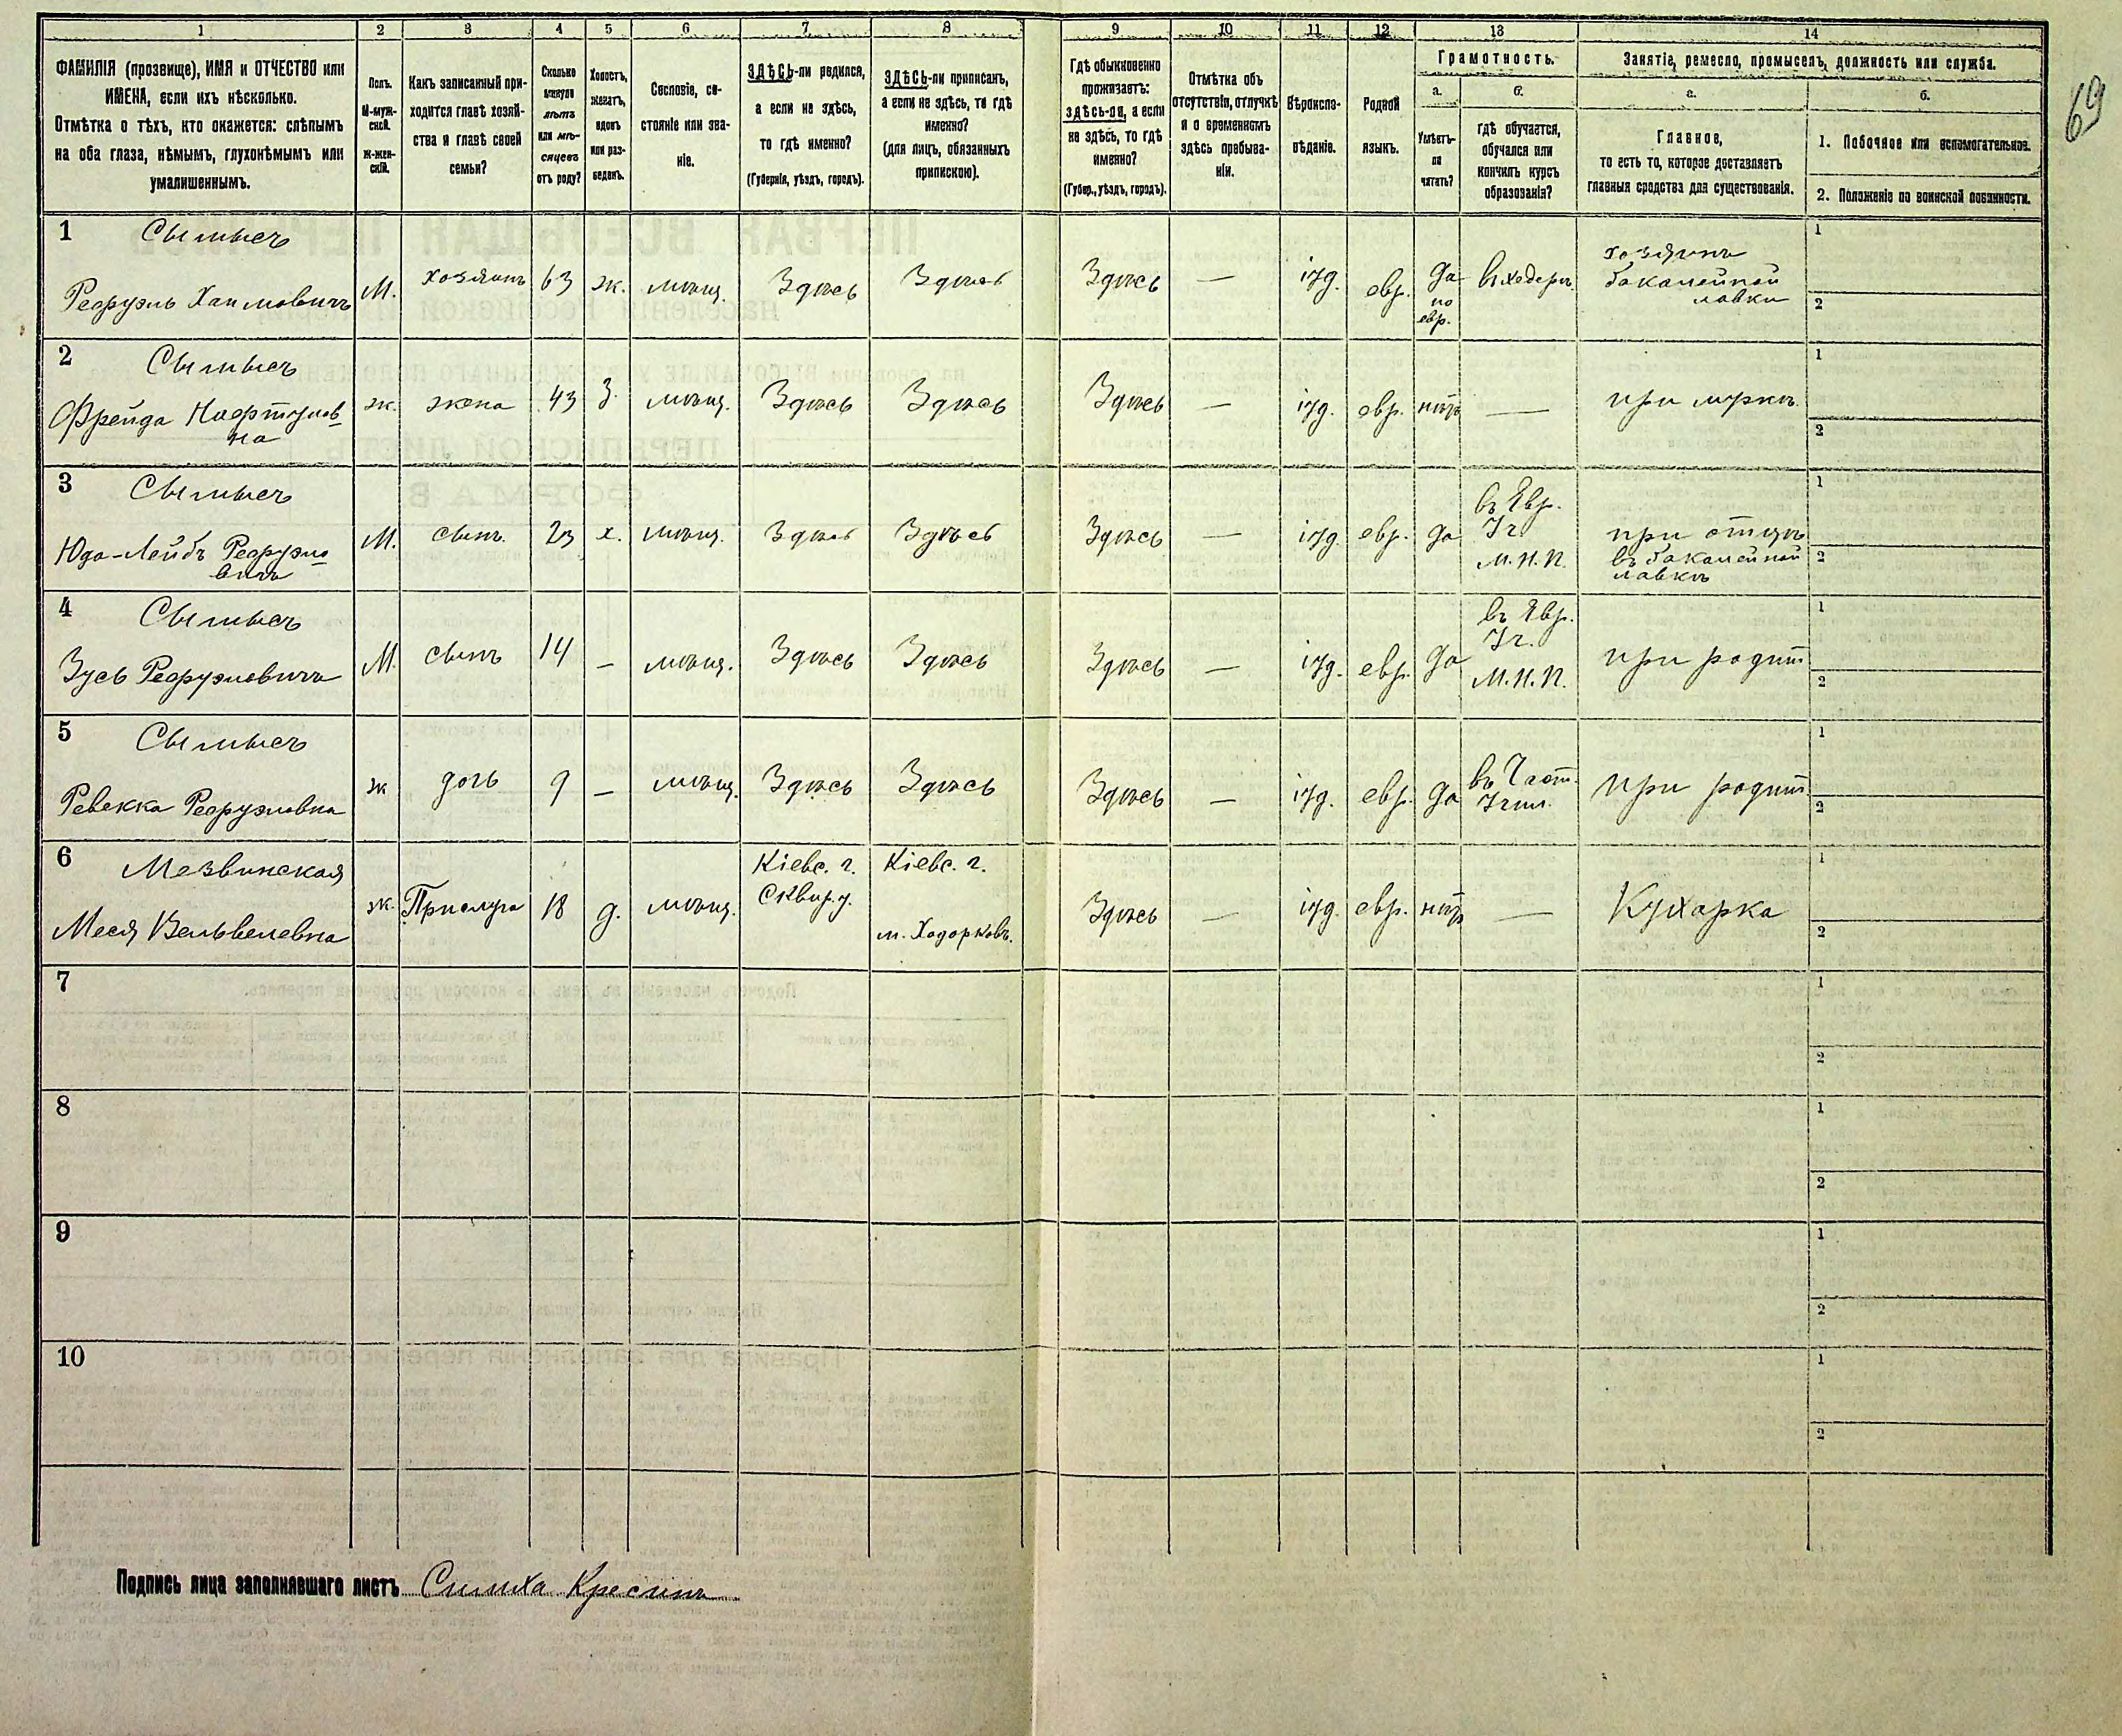 69
1 2 3 4 5 6 7 8 9 10 11 12 13 14
ФАМИЛІЯ (прозвище), ИМЯ и ОТЧЕСТВО или
ИМЕНА, если ихъ нѣсколько.
Отмѣтка о тѣхъ, кто окажется: слѣпымъ
на оба глаза, нѣмымъ, глухонѣмымъ или
умалишеннымъ.
Полъ.
М-муж-
ской.
Ж-жен-
скій.
Какъ записанный при-
ходится главѣ хозяй-
ства и главѣ своей
семьи?
Сколько
минуло
лѣтъ
или мѣ-
сяцевъ
отъ роду?
Холостъ,
женатъ,
вдовъ
или раз-
веденъ.
Сословіе, со-
стояніе или зва-
ніе.
ЗДѢСЬ-ли родился,
а если не здѣсь,
то гдѣ именно?
(Губернія, уѣздъ, городъ).
ЗДѢСЬ-ли приписанъ,
а если не здѣсь, то гдѣ
именно?
(для лицъ, обязанныхъ
припискою).
Гдѣ обыкновенно
проживаетъ:
здѣсь-ли, а если
не здѣсь, то гдѣ
именно?
(Губер., уѣздъ, городъ).
Отмѣтка объ
отсутствіи, отлучкѣ
и о временномъ
здѣсь пребыва-
ніи.
Вѣроиспо-
вѣданіе.
Родной
языкъ.
Грамотность.
а.
Умѣетъ-
ли
читать?
б.
гдѣ обучается,
обучался или
кончилъ курсъ
образованія?
Занятіе, ремесло, промыселъ, должность или служба.
а.
Главное,
то есть то, которое доставляетъ
главныя средства для существованія.
б.
1. Побочное или вспомогательное.
2. Положеніе по воинской повинности.
1 Сымысъ
Реаруэль Хаимовичъ
М. хозяинъ 63 ж. мѣщ. Здѣсь Здѣсь Здѣсь — іуд. евр. Да
по
евр.
въ хедерѣ
хозяинъ
бакалейной
лавки
1
2
2 Сымысъ
Фрейда
на
ж. жена 43 З. мѣщ. Здѣсь Здѣсь Здѣсь — іуд. евр. нѣтъ — при мужѣ.
1
2
3 Сымысъ
Юда-Лейбъ Реаруэло
вичъ
М. сынъ. 23 х. мѣщ. Здѣсь Здѣсь Здѣсь — іуд. евр. да
въ Евр.
Уч
М.Н.П.
при отцѣ
въ бакалейной
лавкѣ
1
2
4 Сымысъ
Зусь Реаруэловичъ
М. сынъ 14 — мѣщ. Здѣсь Здѣсь Здѣсь — іуд. евр. да
въ Евр.
Уч.
М.Н.П.
при родит
1
2
5 Сымысъ
Ревекка Реаруэловна
ж дочь 9 — мѣщ. Здѣсь Здѣсь Здѣсь — іуд. евр. да
въ Част.
Учил.
при родит
1
2
6 Мезвинская
Мася Вельвелевна
ж. Прислуга 18 д. мѣщ.
Кіевс. г.
Сквир.у.
Кіевс. г.
м. Ходорковъ.
Здѣсь — іуд. евр. нѣтъ — Кухарка
1
2
7
1
2
8
1
2
9
1
2
10
1
2
Подпись лица заполнявшаго листъ Симха Кресинъ